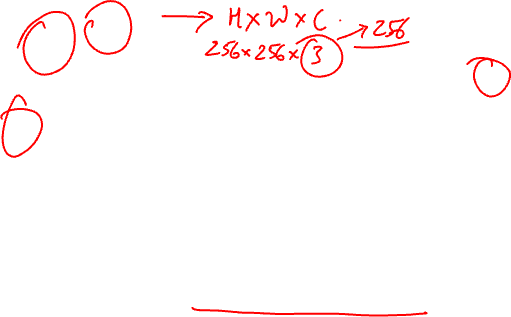 → H×W×C.
256×256×3 → 256